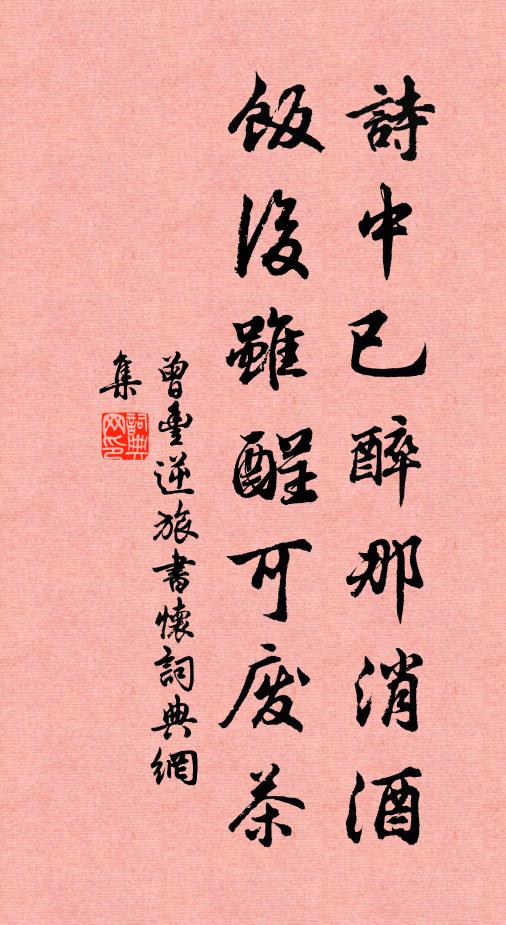 詩中已醉那消酒
飯後雖醒可废茶
曾豊逆旅書懷詞典網
集
詞典网印